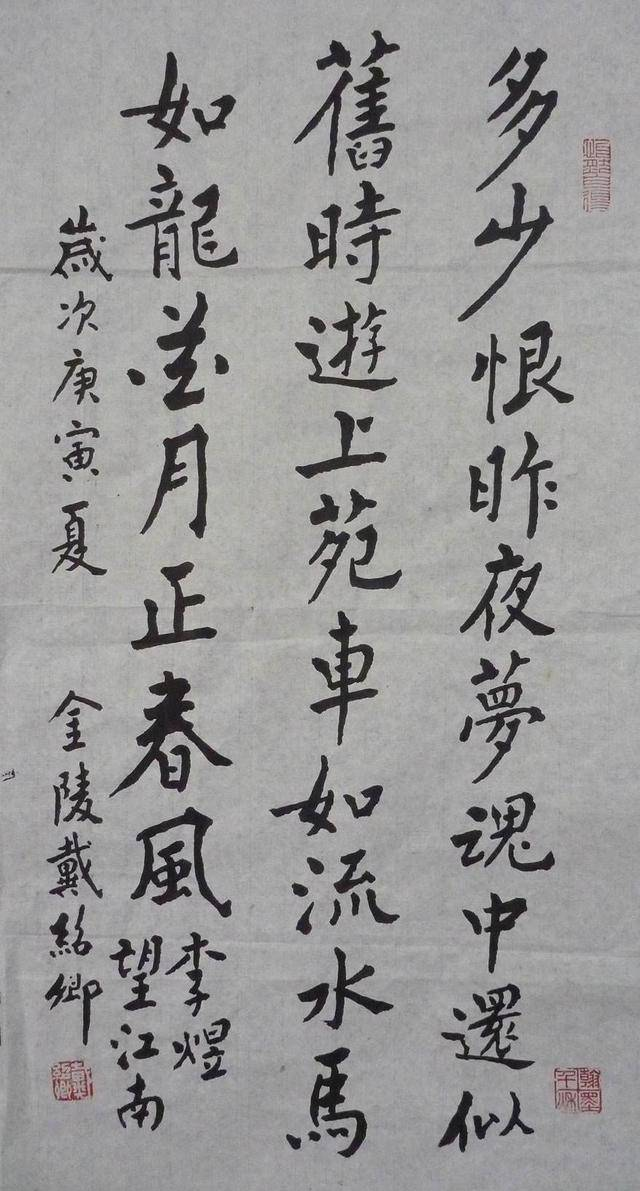 多少恨昨夜夢魂中還似
舊時遊上苑車如流水馬
如龍花月正春風
李煜
望江南
歲次庚寅夏 金陵戴紹卿